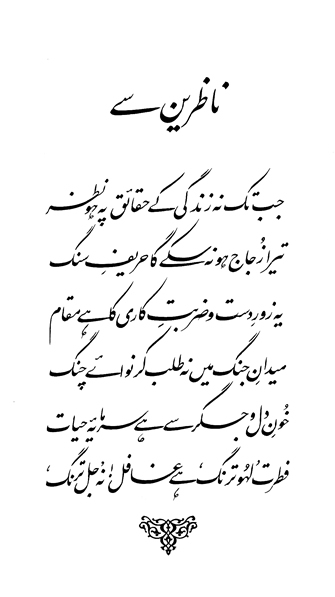 ناظرین سے
جب تک نہ زندگی کے حقائق پہ ہو نظر
تیرا زُجاج ہو نہ سکے گا حریفِ سنگ
یہ زورِ دست و ضربتِ کاری کا ہے مقام
میدانِ جنگ میں نہ طلب کر نوائے چنگ
خُونِ دل و جگر سے ہے سرمایۂ حیات
فطرت ’لہُو ترنگ‘ ہے غافل! نہ ’جل ترنگ‘